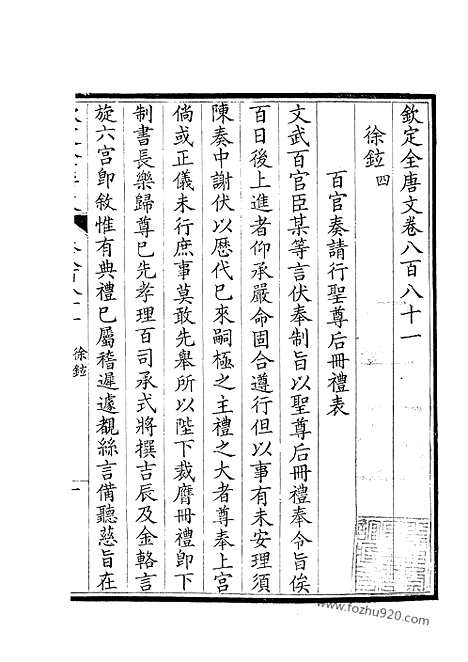 欽定全唐文卷八百八十一
徐鉉 四
百官奏請行聖尊后冊禮表
文武百官臣某等言伏奉制旨以聖尊后冊禮奉令旨俟
百日後上進者仰承嚴命固合遵行但以事有未安理須
陳奏中謝伏以歷代已來嗣極之主禮之大者尊奉上宫
倘或正儀未行庶事莫敢先舉所以陛下裁膺冊禮卽下
制書長樂歸尊已先孝理百司承式將撰吉辰及金輅言
旋六宫卽敘惟有典禮已屬稽遲遽覩絲言備聽慈旨在
徐鉉
一
www.fozhu920.com